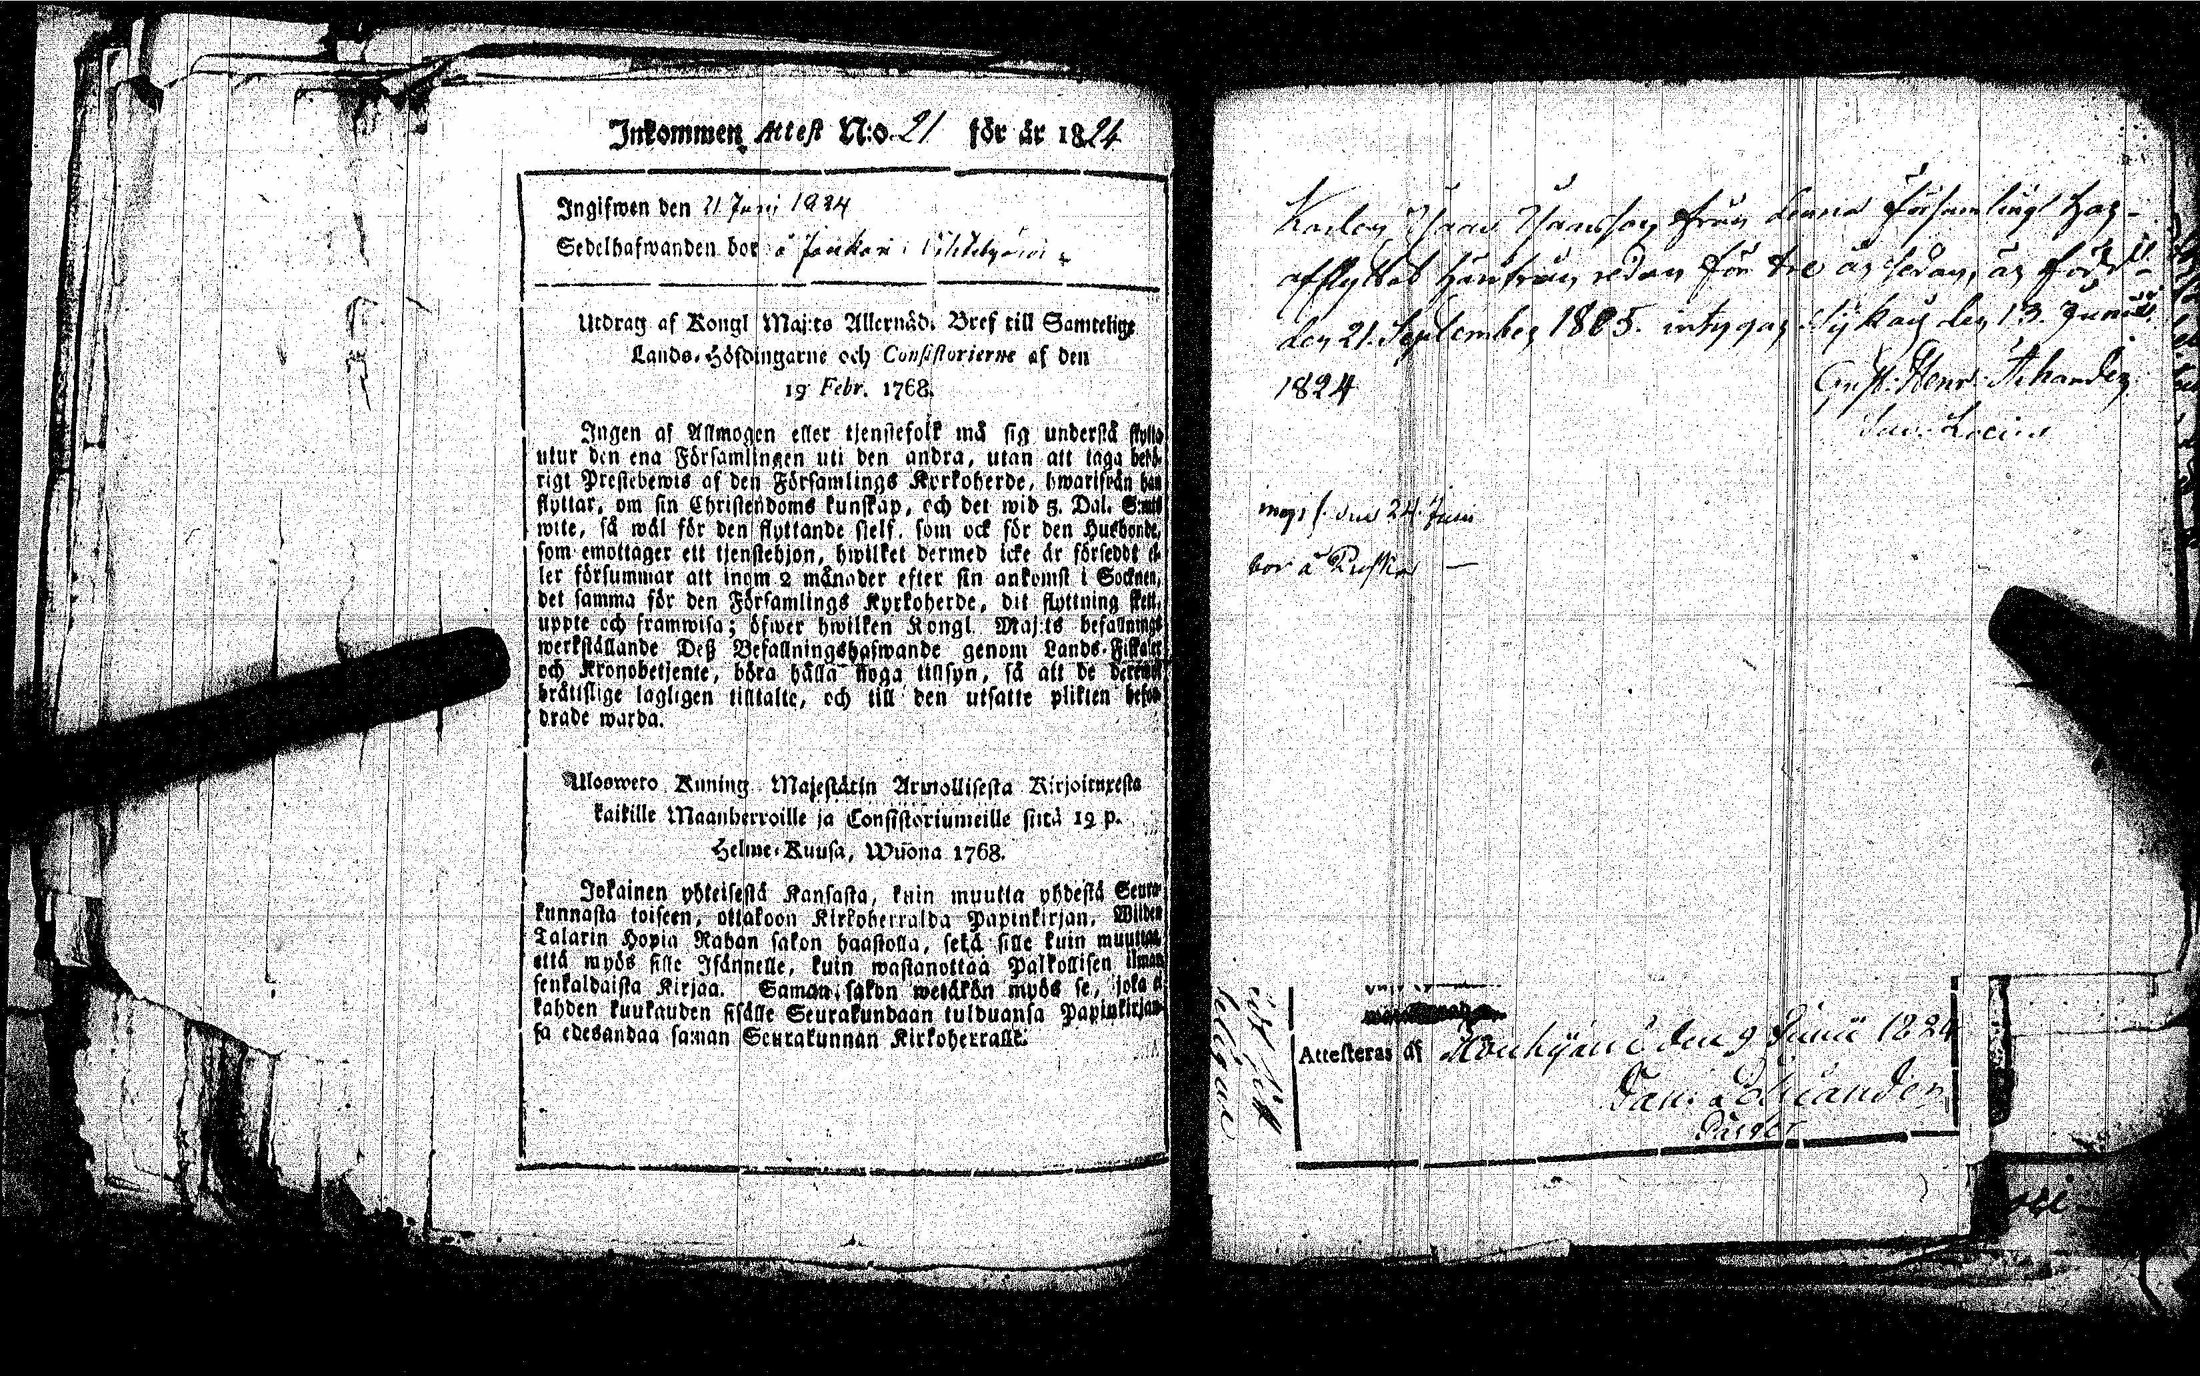 Inkommen Attest N:o 21 för år 1824
Ingifwen den 21 Juni 1824
Sedelhafwanden bor å
Utdrag af Kongl Maj:ts Allernåd. Bref till Samtelige
Lands-Höfdingarne och Consistorierne af den
19 Febr. 1768.
Ingen af Allmogen eller tjenstefolk må sig understå flytta
utur den ena Församlingen uti den andra, utan att taga behö-
rigt Prestebewis af den Församlings Kyrkoherde, hwarifrån han
flyttar, om sin Christendoms kunskap, och det wid 5. Dal. S:mts
wite, så wäl för den flyttande sielf, som ock för den Husbonde,
som emottager ett tjenstehjon, hwilket dermed icke är försedt el-
ler försummar att inom 2 månader efter sin ankomst i Socknen,
det samma för den Församlings Kyrkoherde, dit flyttning skett,
uppte och framwisa; öfwer hwilken Kongl. Maj:ts befallnings
werkställande Deß Befallningshafwande genom Lands-Fiskaler
och Kronobetjente, böra hålla noga tillsyn, så att de deremot
bråtislige lagligen tilltalte, och till den utsatte plikten befor-
drade warda.
Ulosweto Kuning. Majestätin Armollisesta Kirjoituxesta
kaikille Maanherroille ja Consistoriumeille siitä 19 p.
Helme-Kuusa, Wuona 1768.
Jokainen yhteisestä Kansasta, kuin muutta yhdestä Seura-
kunnasta toiseen, ottakoon Kirkoherralda Papinkirjan, Wiiden
Talarin Hopia Rahan sakon haastolla, sekä sille kuin muuttaa,
että myös sille Isännelle, kuin wastanottaa Palkollisen ilman
senkaldaista Kirjaa. Saman sakon wetäkön myös se, joka ei
kahden kuukauden sisälle Seurakundaan tulduansa Papinkirjan-
sa edesandaa saman Seurakunnan Kirkoherralle.
Karlen Isaac Isaacsson från denna Församling har
afflyttat härifrån redan för tre år sedan, är född
den 21. September 1805. intygar den 13. Junii
1824
den 24. Juni
bor å
Attesteras af den 9 Junii 1824
Pastor